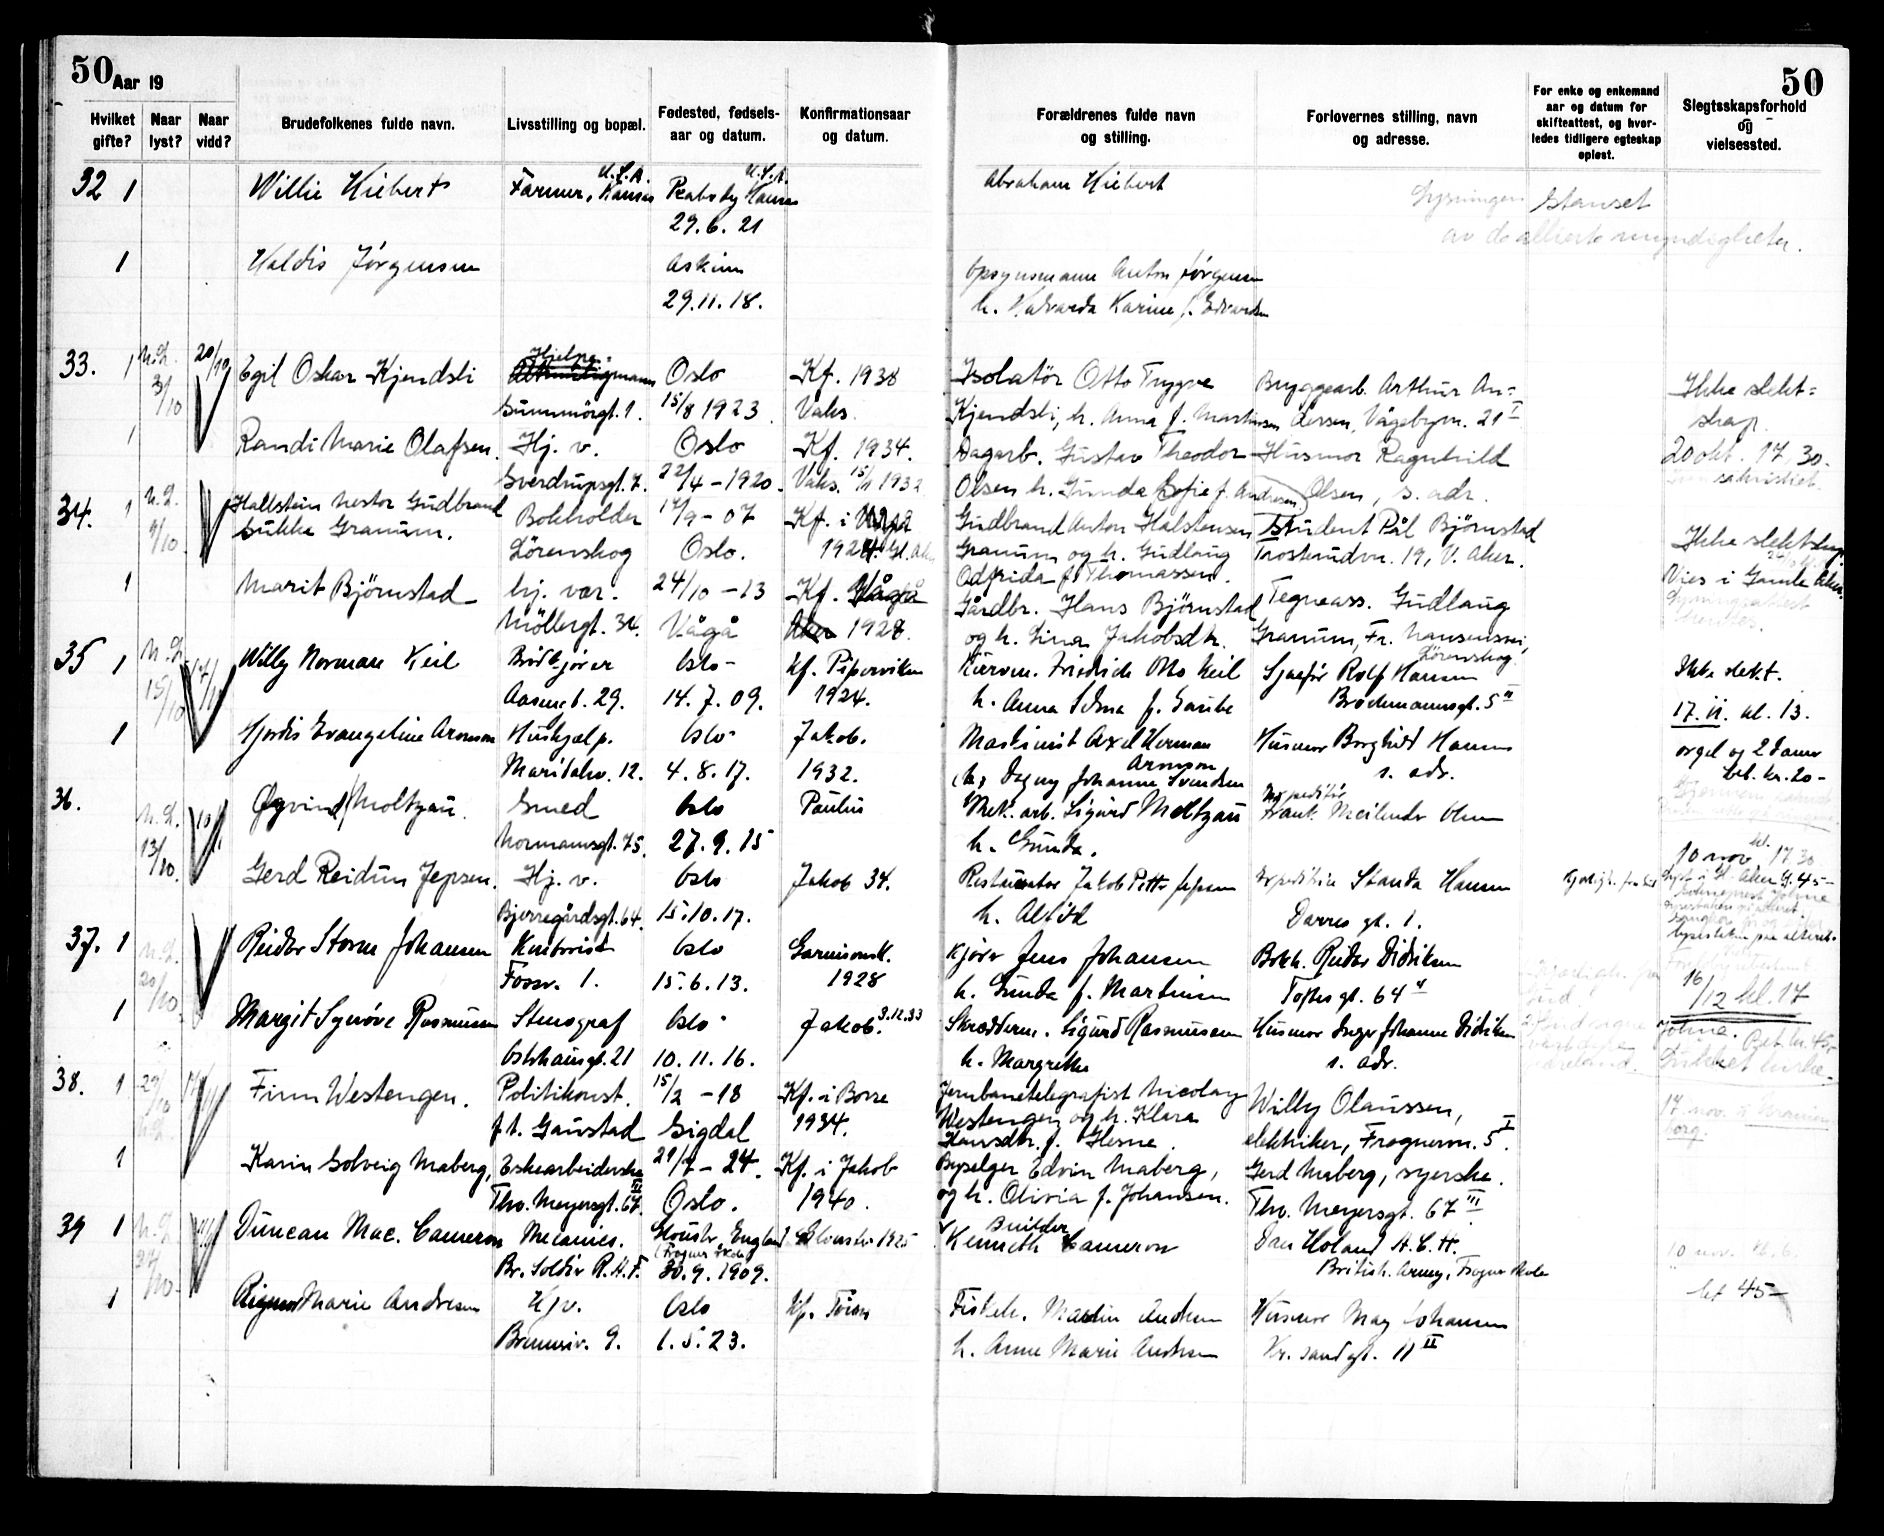 50 Aar 19
50
Hvilket gifte?
Naar lyst?
Naar vidd?
Brudefolkenes fulde navn.
Livsstilling og bopæl.
Fødested, fødsels-
aar og datum.
Konfirmationsaar
og datum.
Forældrenes fulde navn
og stilling.
Forlovernes stilling, navn
og adresse.
For enke og enkemand
aar og datum for
skifteattest, og hvor-
ledes tidligere egteskap
opløst.
Slegtsskapsforhold
og
vielsessted.
32 1 Willie Hiebert
Farmer, Kansas U.S.A.
Peabody Kansas U.S.A.
29.6.21
Abraham Hiebert
Lysningen stanset
av de allierte myndigheter.
1 Haldis Jørgensen
Askim
29.11.18.
Opsynsmann Anton Jørgensen
h. Valvarda Karine f. Edvardsen
33. 1 3/10 20/10 Egil Oskar Kjendsli
Hjelpe-
Sunnmörgt. 1.
Oslo
15/8 1923
Kf. 1938
Vaks.
Isolatör Otto Trygve
Kjendsli, h. Anna f. Martinsen
Bryggearb. Arthur An-
dersen, Vågebyn. 21 I
Ikke slekt-
skap.
1 Randi Marie Olafsen.
Hj. v.
Sverdrupsgt. 7.
Oslo
22/4 - 1920.
Kf. 1934.
Vaks. 15/11 1932
Dagarb. Gustav Theodor
Olsen h. Gunda Sofie f. Andresen
Husmor Ragnhild
Olsen, s. adr.
20 okt. 17,30.
sakristiet.
34. 1 9/10. Hallstein Nestor Gudbrand
Sukke Granum.
Bokholder
Lörenskog
17/9 - 07
Oslo.
Kf. i
1924. Gl. Aker
Gudbrand Anton Halstensen
Granum og h. Gudlaug
Odfrida f. Thomassen.
Student Pål Björnstad
Trosterudvn. 19, V. Aker.
Ikke slektskap.
Vies i Gamle Aker.
1 Marit Björnstad
hj. vær.
Möllergt. 34.
24/10 - 13
Vågå
Kf. Vågå
Aker 1928.
Gårdbr. Hans Björnstad
og h. Lina Jakobsdtr.
Tegneass. Gudlaug
Granum, Fr. Nansensvei,
Lörenskog.
35 1 15/10 Willy Norman Keil
Brödkjörer
Aasengt. 29.
Oslo
14.7.09.
Kf. Piperviken
1924.
Kurvm. Friedrich Otto Keil
h. Anna Selma f. Gaube
Sjaafør Rolf Hansen
Brochmannsgt. 5 II
Ikke slekt.
17. 11. kl. 13.
1 Hjordis Evangeline Aronson
Hushjælp.
Maridalsv. 12.
Oslo
4.8.17.
Jakob.
1932.
Maskinist Axel Herman
Aronson
h. Dagny Johanne Svendsen
Husmor Borghild Hansen
s. adr.
orgel og 2 damer
bet. kr. 20-
36. 13/10. Øyvind Moltzau.
Smed
Normannsgt. 75.
Oslo
27.9.15
Paulus
Mek. arb. Sigurd Moltzau
h. Gunda.
Expeditör
Frank Meilender Olsen
10 nov. kl. 17 30
Gerd Reidun Jepsen.
Hj. v.
Bjerregårdsgt. 64.
Oslo
15.10.17.
Jakob 34.
Restauratör Jakob Petter Jepsen
h. Alvild
Expeditrise Standa Hansen
Darres gt. 1.
37. 1 20/10. Reidar Storm Johansen
Kontorist
Fossv. 1.
Oslo
15.6.13.
Garnisonsk.
1928
Kjører Jens Johansen
h. Gunda f. Martinsen
Bokh. Reidar Didriksen
Toftesgt. 64 V
16/12 kl. 17
1 Margit Synöve Rasmussen
Stenograf
Osterhausgt. 21
Oslo
10.11.16.
Jakob. 3.12.33
Skredderm. Sigurd Rasmussen
h. Margrethe
Husmor Inger Johanne Didriksen
s. adr.
38. 1 29/10 Finn Westengen.
Politikonst.
f. t. Gaustad
15/2 - 18
Sigdal
Kf. i Borre
1934.
Jernbanetelegrafist Nicolay
Westengen og h. Klara
Hansdtr. f. Glesne.
Willy Olaussen,
elektriker, Frognervn. 5 I.
17 nov.
org.
1 Karin Solveig Moberg,
Eskearbeiderske
Thv. Meyersgt. 67 III
21/7 - 24.
Oslo.
Kf. i Jakob
1940.
Byselger Edvin Moberg,
og h. Olivia f. Johansen.
Gerd Moberg, syerske.
Thv. Meyersgt. 67 III.
39 1 Duncan Mac. Cameron
Mecanics.
Br. Soldier R.A.F.
Gloustr. England
(Frogner skole)
30.9.1909.
Gloustr 1925
Builder
Kenneth Cameron
Dan Holand A.C.H.
British. Army, Frogner skole
10 nov.
bet 45-
1 Rigmor Marie Andresen
Hjv.
Brennerv. 9.
Oslo
1.5.23.
Fiskeh. Martin Andresen
h. Anne Marie Andresen
Husmor May Johansen
Kr. sandgt. 11 II